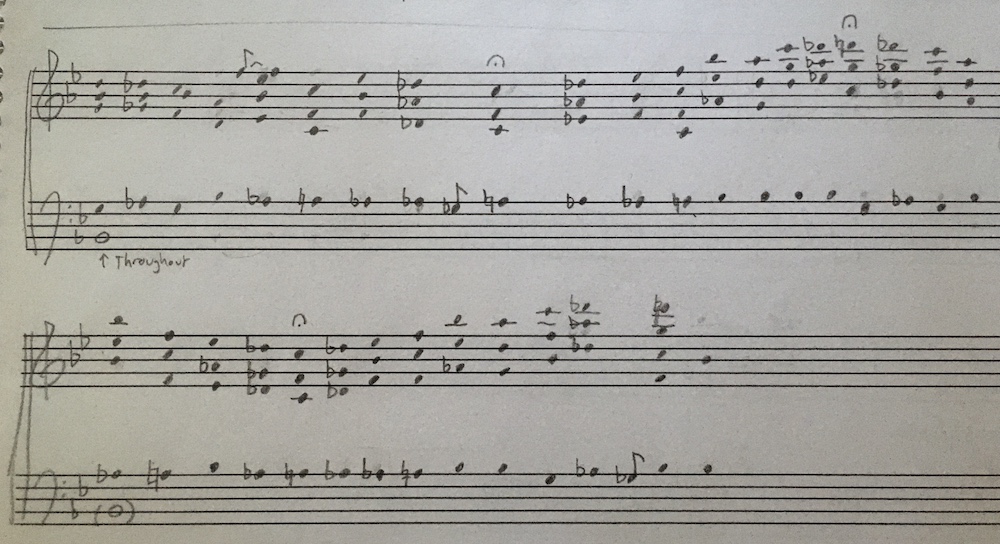 ↑ Throughout